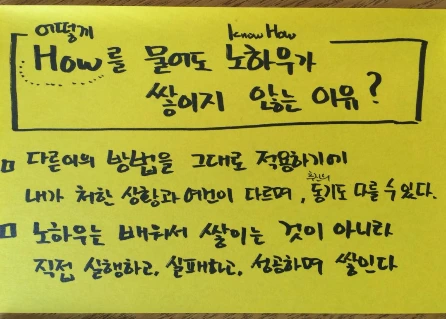 어떻게 Know How
How를 물어도 노하우가
쌓이지 않는 이유?
다른이의 방법을 그대로 적용하기에
내가 처한 상황과 여건이 다르며, 추진의 동기도 다를 수 있다.
노하우는 배워서 쌓이는 것이 아니라
직접 실행하고, 실패하고, 성공하며 쌓인다